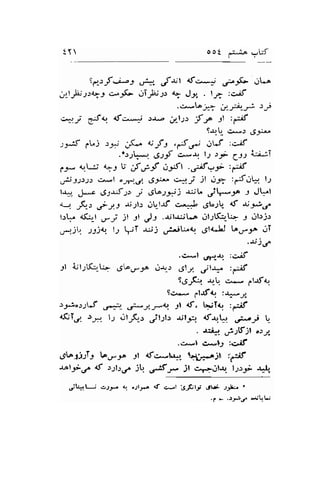 کتاب هشتم ۵۵۴ ۴۲۱
همان حکومتی نیست که اندکی پیش وصف کردیم؟
گفت: چرا . چه در نظر آن حکومت وچه درنظراین
فرد شریفترین چیزهاست.
گفتم: او هرگز دراین صدد نیست که به گنج تربیت
معنوی دست یابد؟
گفت: گمان نمی‌کنم، وگرنه ممکن نبود زمام کشور
آشفتۀ روح خود را بدست کوری بسپارد*.
گفتم: خوب گفتی. اکنون گوش کن تا وجه تشابه سوم
را بیان کنم: چون از تربیت معنوی بی‌بهره است دردرونش
امیال و هوسهائی مانند زنبورهای نر درکندوی عسل پیدا
می‌شوند که پاره‌ای طبیعت گدایان دارند وبرخی دیگر به
دزدان و جنایتکاران همانندند. ولی او از ترس اینکه مبادا
آن هوسها لطمه‌ای به‌منافعش زنند آنها را بزور بازپس
می‌زند.
گفت: بدیهی است.
گفتم: میدانی برای دیدن هوسهای جنایتکارانۀ او
به‌کدام سمت باید بنگری؟
پرسید: به‌کدام سمت؟
گفتم: به‌آنجا، که او به‌سرپرستی یتیمی گمارده‌شود
یا فرصتی بیابدکه بتواند دارائی دیگران را ببرد بی‌آنکه
پرده ازکارش بیفتد .
گفت: راست است.
گفتم: ازهمین‌جا پیداست‌که او هوسها وآرزوهای
پلید خودرا بدان‌جهت از سرکشی باز می‌دارد که می‌خواهد
* منظور خدای توانگری است که همواره به صورت نابینائی
نمایانده می‌شود. ـ م.